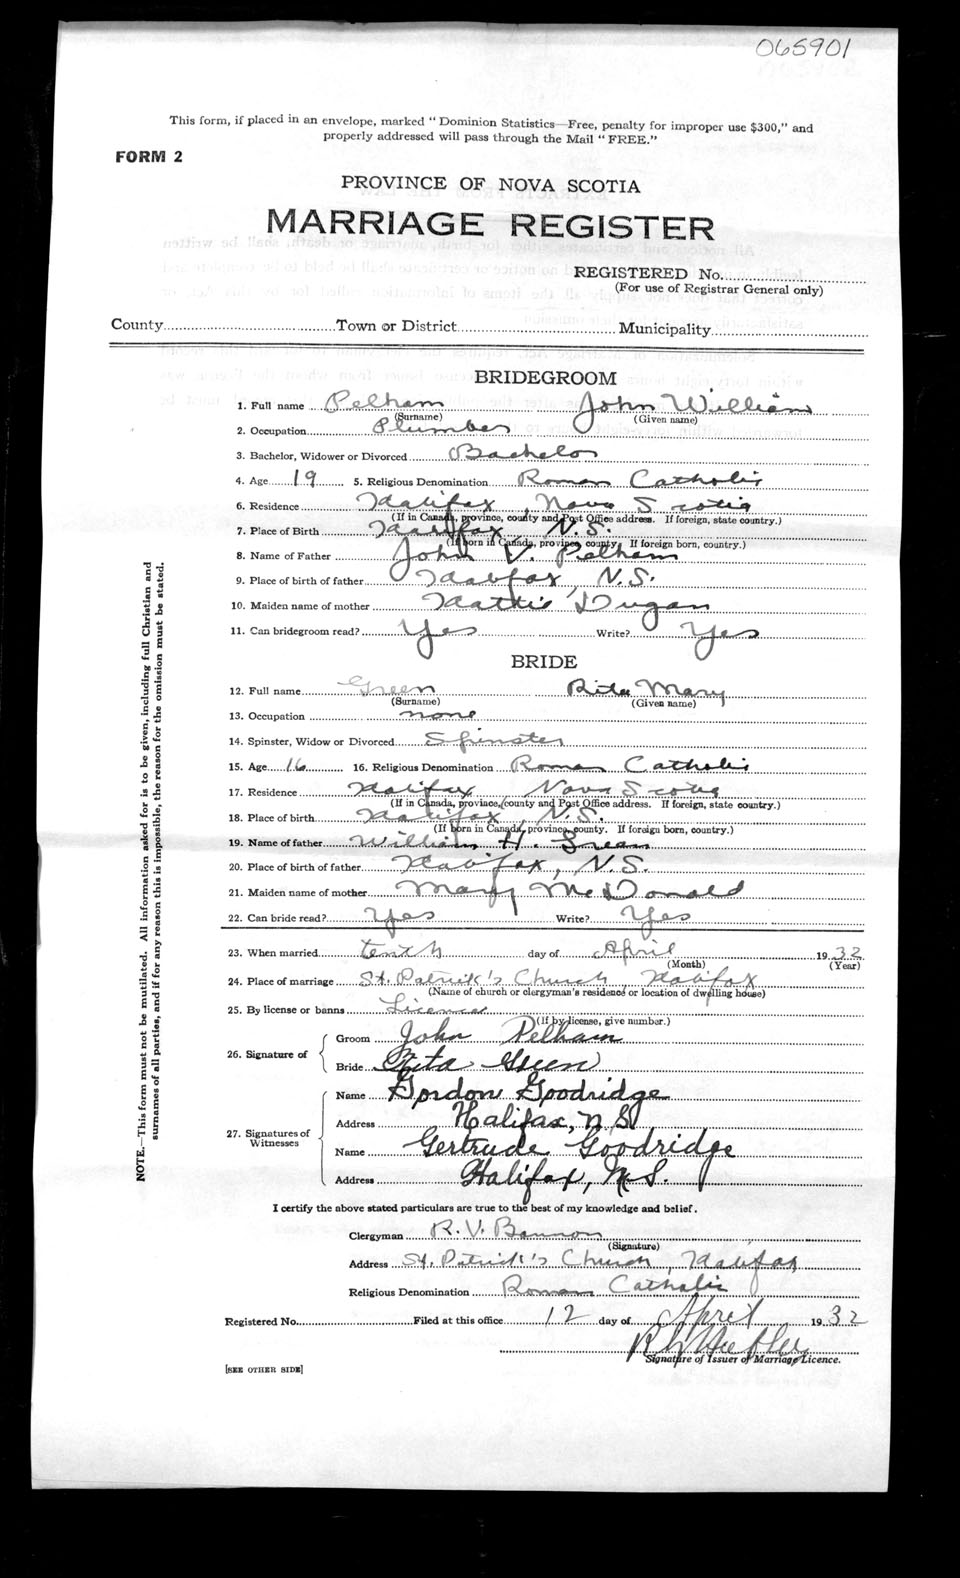 065901
This form, if placed in an envelope, marked "Dominion Statistics—Free, penalty for improper use $300," and
properly addressed will pass through the Mail "FREE."
FORM 2
PROVINCE OF NOVA SCOTIA
MARRIAGE REGISTER
REGISTERED No.
(For use of Registrar General only)
County Town or District Municipality
BRIDEGROOM
1. Full name Pelham John William
(Surname) (Given name)
2. Occupation Plumber
3. Bachelor, Widower or Divorced Bachelor
4. Age 19 5. Religious Denomination Roman Catholic
6. Residence Halifax, Nova Scotia
(If in Canada, province, county and Post Office address. If foreign, state country.)
7. Place of Birth Halifax, N.S.
(If born in Canada, province, county. If foreign born, country.)
8. Name of Father John V. Pelham
9. Place of birth of father Halifax, N.S.
10. Maiden name of mother Hattie Dugan
11. Can bridegroom read? Yes Write? Yes
BRIDE
12. Full name Green Rita Mary
(Surname) (Given name)
13. Occupation none
14. Spinster, Widow or Divorced Spinster
15. Age 16 16. Religious Denomination Roman Catholic
17. Residence Halifax Nova Scotia
(If in Canada, province, county and Post Office address. If foreign, state country.)
18. Place of birth Halifax, N.S.
(If born in Canada, province, county. If foreign born, country.)
19. Name of father William H. Green
20. Place of birth of father Halifax, N.S.
21. Maiden name of mother Mary McDonald
22. Can bride read? Yes Write? Yes
23. When married tenth day of April 1932
(Month) (Year)
24. Place of marriage St. Patrick's Church Halifax
(Name of church or clergyman's residence or location of dwelling house)
25. By license or banns Licence
(If by license, give number.)
26. Signature of
Groom John Pelham
Bride Rita Green
27. Signatures of Witnesses
Name Gordon Goodridge
Address Halifax, N.S.
Name Gertrude Goodridge
Address Halifax, N.S.
I certify the above stated particulars are true to the best of my knowledge and belief.
Clergyman R. V. Bannon
(Signature)
Address St. Patrick's Church, Halifax
Religious Denomination Roman Catholic
Registered No. Filed at this office 12 day of April 1932
Signature of Issuer of Marriage Licence.
[SEE OTHER SIDE]
NOTE.—This form must not be mutilated. All information asked for is to be given, including full Christian and
surnames of all parties, and if for any reason this is impossible, the reason for the omission must be stated.